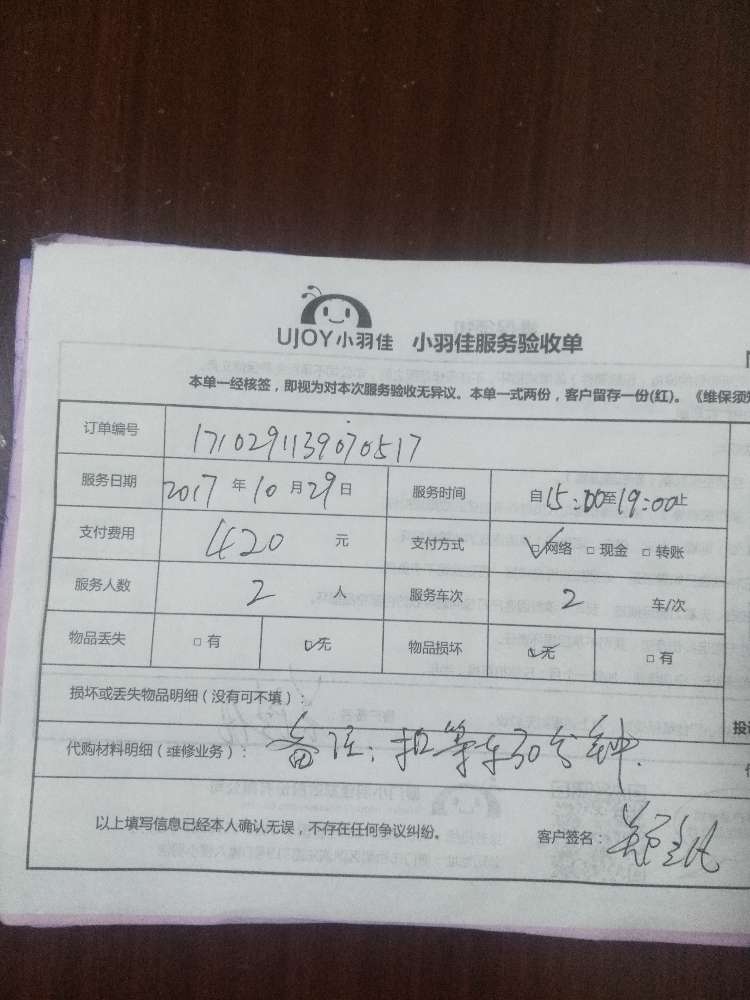 UJOY小羽佳 小羽佳服务验收单
本单一经核签，即视为对本次服务验收无异议。本单一式两份，客户留存一份(红)。《维保须知
订单编号 1710291139070517
服务日期 2017 年 10 月 29 日 服务时间 自 15:00 至 19:00 止
支付费用 420 元 支付方式 ☑ 网络 □ 现金 □ 转账
服务人数 2 人 服务车次 2 车/次
物品丢失 □ 有 ☑ 无 物品损坏 ☑ 无 □ 有
损坏或丢失物品明细（没有可不填）：
代购材料明细（维修业务）： 备注：扣等车30分钟.
以上填写信息已经本人确认无误，不存在任何争议纠纷。 客户签名：